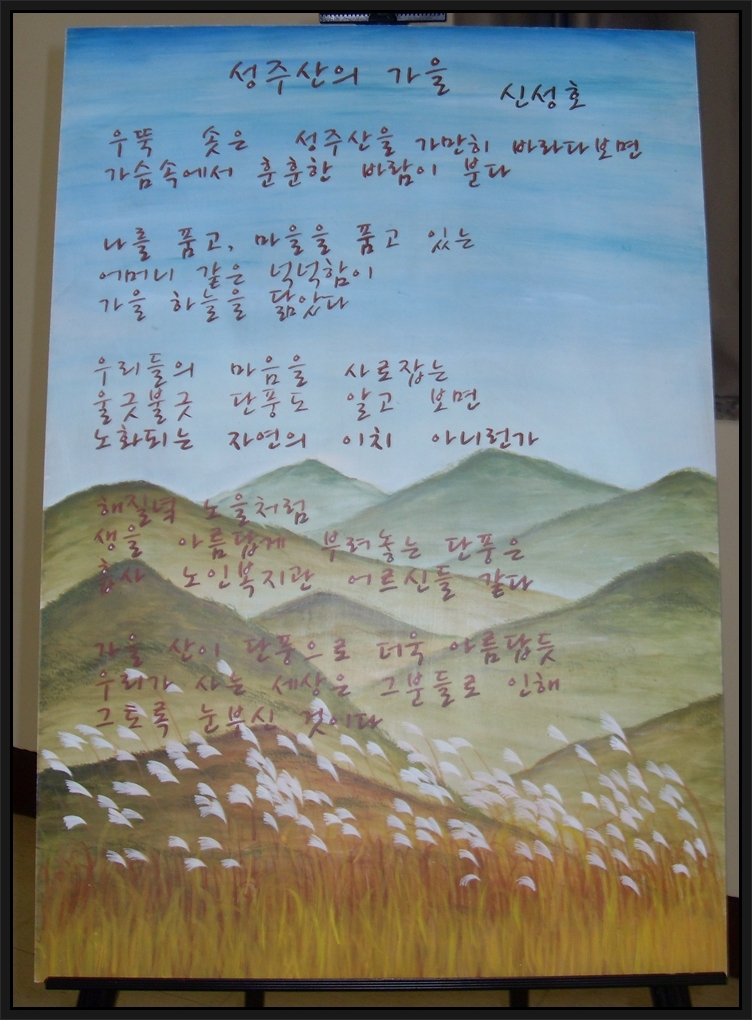 성주산의 가을
신성호
우뚝 솟은 성주산을 가만히 바라다보면
가슴속에서 훈훈한 바람이 분다
나를 품고, 마을을 품고 있는
어머니 같은 넉넉함이
가을 하늘을 닮았다
우리들의 마음을 사로잡는
울긋불긋 단풍도 알고 보면
노화되는 자연의 이치 아니런가
해질녘 노을처럼
생을 아름답게 부려놓는 단풍은
흡사 노인복지관 어르신들 같다
가을 산이 단풍으로 더욱 아름답듯
우리가 사는 세상은 그분들로 인해
그토록 눈부신 것이다